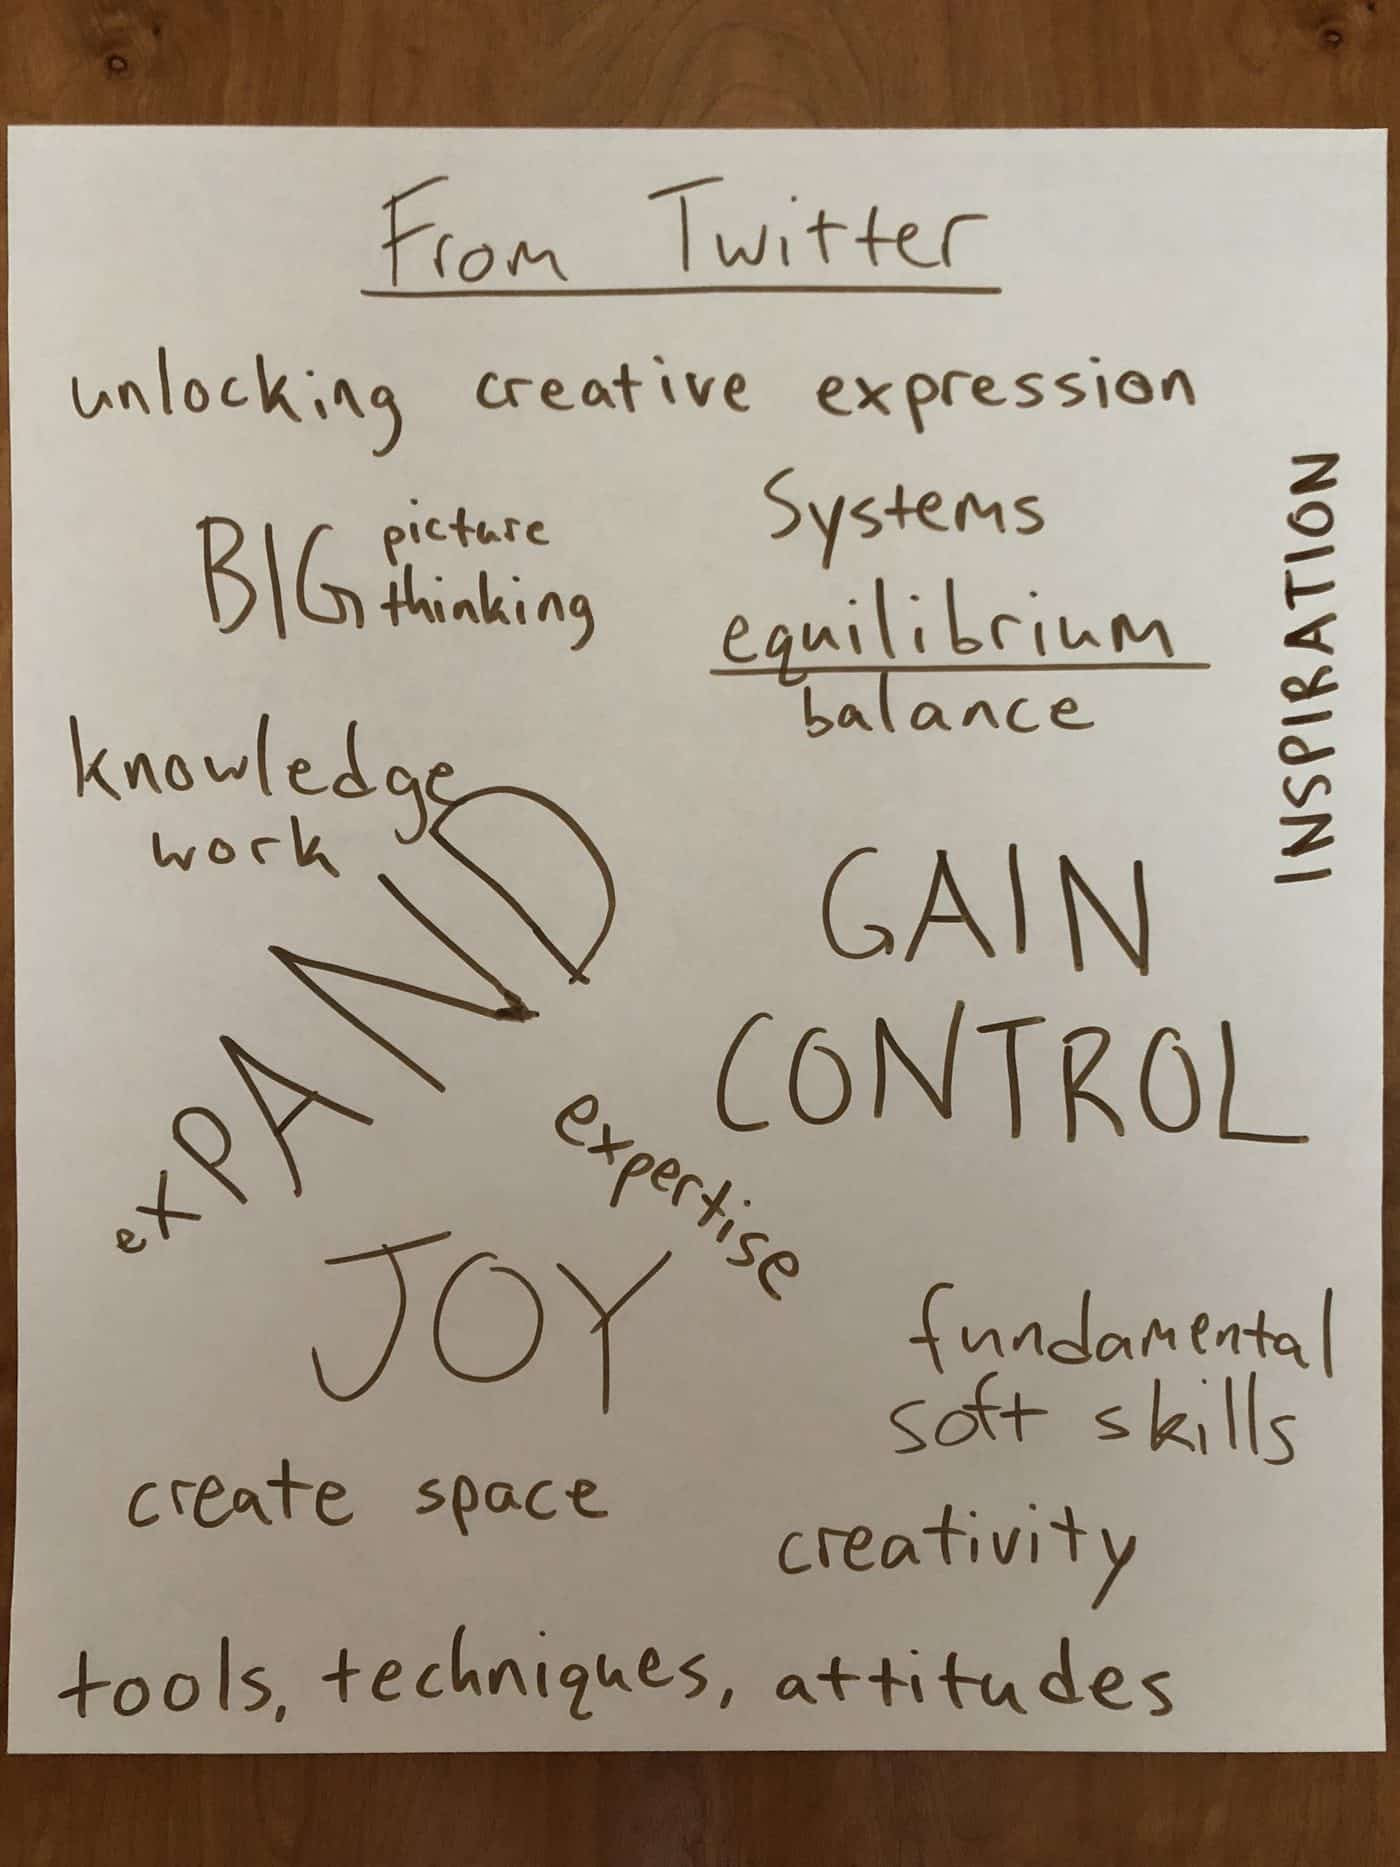 From Twitter
unlocking creative expression
BIG picture
thinking
Systems
equilibrium
balance
INSPIRATION
knowledge
work
exPAND
GAIN
CONTROL
expertise
JOY
fundamental
soft skills
create space
creativity
tools, techniques, attitudes